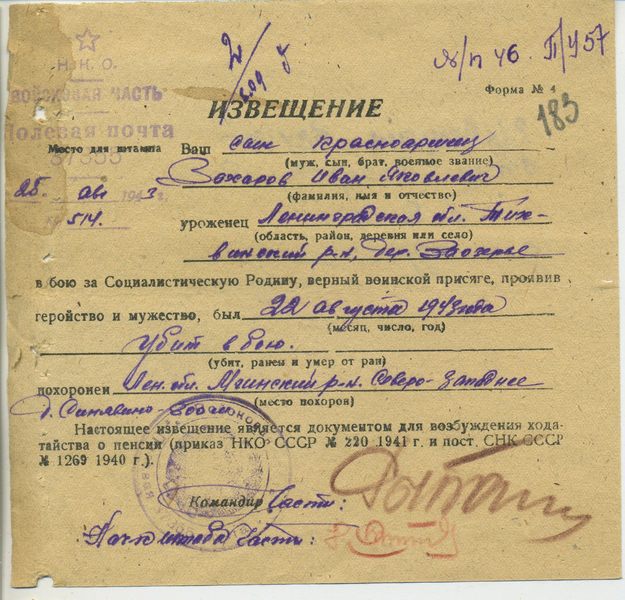 Н. К. О.
ВОЙСКОВАЯ ЧАСТЬ
Полевая почта
57555
Место для штампа
25 авг 1943 г.
№ 514.
2/
№/п 46. П/у 57
Форма № 4
183
ИЗВЕЩЕНИЕ
Ваш сын красноармеец
(муж, сын, брат, воеямое звание)
Захаров Иван Яковлевич
(фамилия, имя и отчество)
уроженец Ленинградская обл. Тих-
(область, район, деревня или село)
винский р-н, дер. Заозерье
в бою за Социалистическую Родину, верный воинской присяге, проявив
геройство и мужество, был 22 августа 1943 года
(месяц, число, год)
Убит в бою.
(убит, ранен и умер от ран)
похоронен Лен. обл. Мгинский р-н. Северо-Западнее
(место похорон)
д. Синявино-
Настоящее извещение является документом для возбуждения хода-
тайства о пенсии (приказ НКО СССР № 220 1941 г. и пост. СНК СССР
№ 1269 1940 г.).
Командир части:
Нач. штаба части: